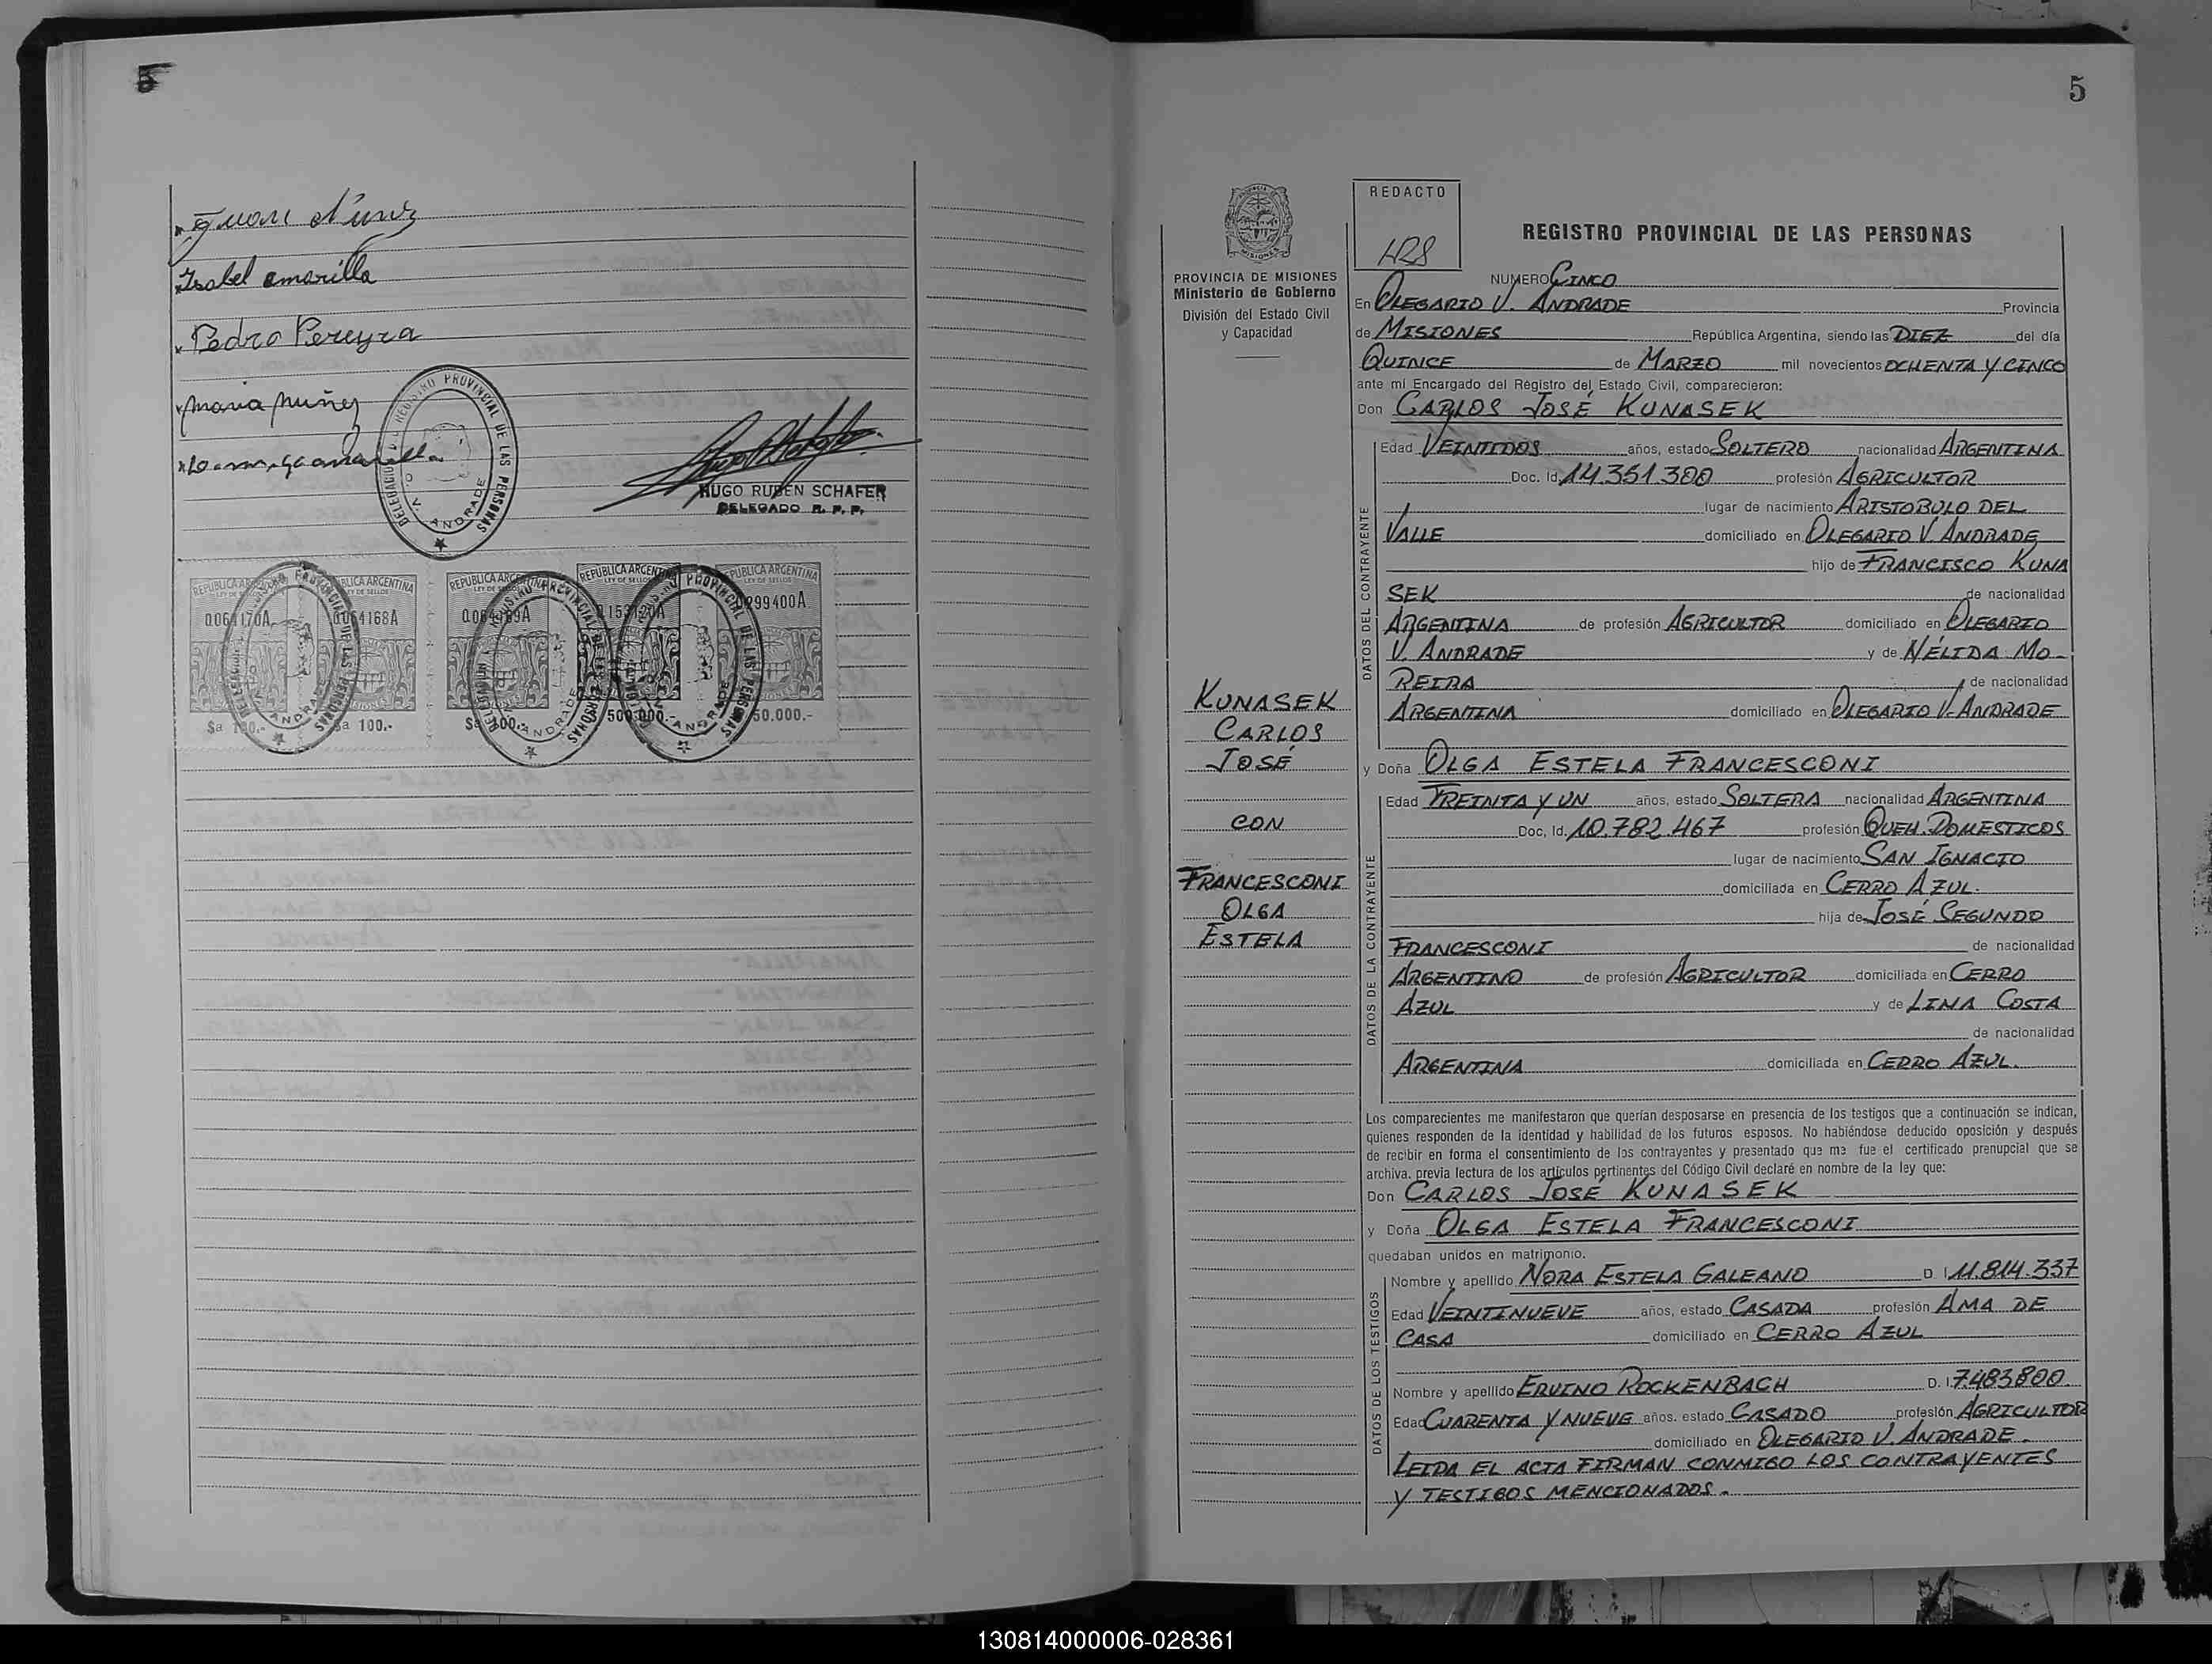 5
Juan Nunez
Isabel amarilla
Pedro Pereyra
Maria Nuñez
DELEGACION REGISTRO PROVINCIAL DE LAS PERSONAS
O. V. ANDRADE
HUGO RUBEN SCHAFER
DELEGADO R. P. P.
REPUBLICA ARGENTINA
LEY DE SELLOS
0.064168A
$a 100.-
500.000.-
50.000.-
5
PROVINCIA DE MISIONES
Ministerio de Gobierno
División del Estado Civil
y Capacidad
KUNASEK
CARLOS
JOSÉ
CON
FRANCESCONI
OLGA
ESTELA
REDACTO
HRS
REGISTRO PROVINCIAL DE LAS PERSONAS
NUMERO CINCO
En OLEGARIO V. ANDRADE Provincia
de MISIONES República Argentina, siendo las DIEZ del día
QUINCE de MARZO mil novecientos OCHENTA Y CINCO
ante mi Encargado del Registro del Estado Civil, comparecieron:
Don CARLOS JOSÉ KUNASEK
DATOS DEL CONTRAYENTE
Edad VEINTIDOS años, estado SOLTERO nacionalidad ARGENTINA
Doc. Id. 14.351.300 profesión AGRICULTOR
lugar de nacimiento ARISTOBULO DEL
VALLE domiciliado en OLEGARIO V. ANDRADE
hijo de FRANCISCO KUNA
SEK de nacionalidad
ARGENTINA de profesión AGRICULTOR domiciliado en OLEGARIO
V. ANDRADE y de NÉLIDA MO-
REIRA de nacionalidad
ARGENTINA domiciliado en OLEGARIO V. ANDRADE
y Doña OLGA ESTELA FRANCESCONI
DATOS DE LA CONTRAYENTE
Edad TREINTA Y UN años, estado SOLTERA nacionalidad ARGENTINA
Doc. Id. 10.782.467 profesión QUEH. DOMESTICOS
lugar de nacimiento SAN IGNACIO
domiciliada en CERRO AZUL.
hija de JOSÉ SEGUNDO
FRANCESCONI de nacionalidad
ARGENTINO de profesión AGRICULTOR domiciliada en CERRO
AZUL y de LINA COSTA
de nacionalidad
ARGENTINA domiciliada en CERRO AZUL.
Los comparecientes me manifestaron que querían desposarse en presencia de los testigos que a continuación se indican,
quienes responden de la identidad y habilidad de los futuros esposos. No habiéndose deducido oposición y después
de recibir en forma el consentimiento de los contrayentes y presentado que me fue el certificado prenupcial que se
archiva, previa lectura de los artículos pertinentes del Código Civil declaré en nombre de la ley que:
Don CARLOS JOSÉ KUNASEK
y Doña OLGA ESTELA FRANCESCONI
quedaban unidos en matrimonio.
DATOS DE LOS TESTIGOS
Nombre y apellido NORA ESTELA GALEANO D. I. 11.814.337
Edad VEINTINUEVE años, estado CASADA profesión AMA DE
CASA domiciliado en CERRO AZUL
Nombre y apellido ERVINO ROCKENBACH D. I. 7.483.800.
Edad CUARENTA Y NUEVE años, estado CASADO profesión AGRICULTOR
domiciliado en OLEGARIO V. ANDRADE.
LEIDA EL ACTA FIRMAN CONMIGO LOS CONTRAYENTES
Y TESTIGOS MENCIONADOS.
130814000006-028361